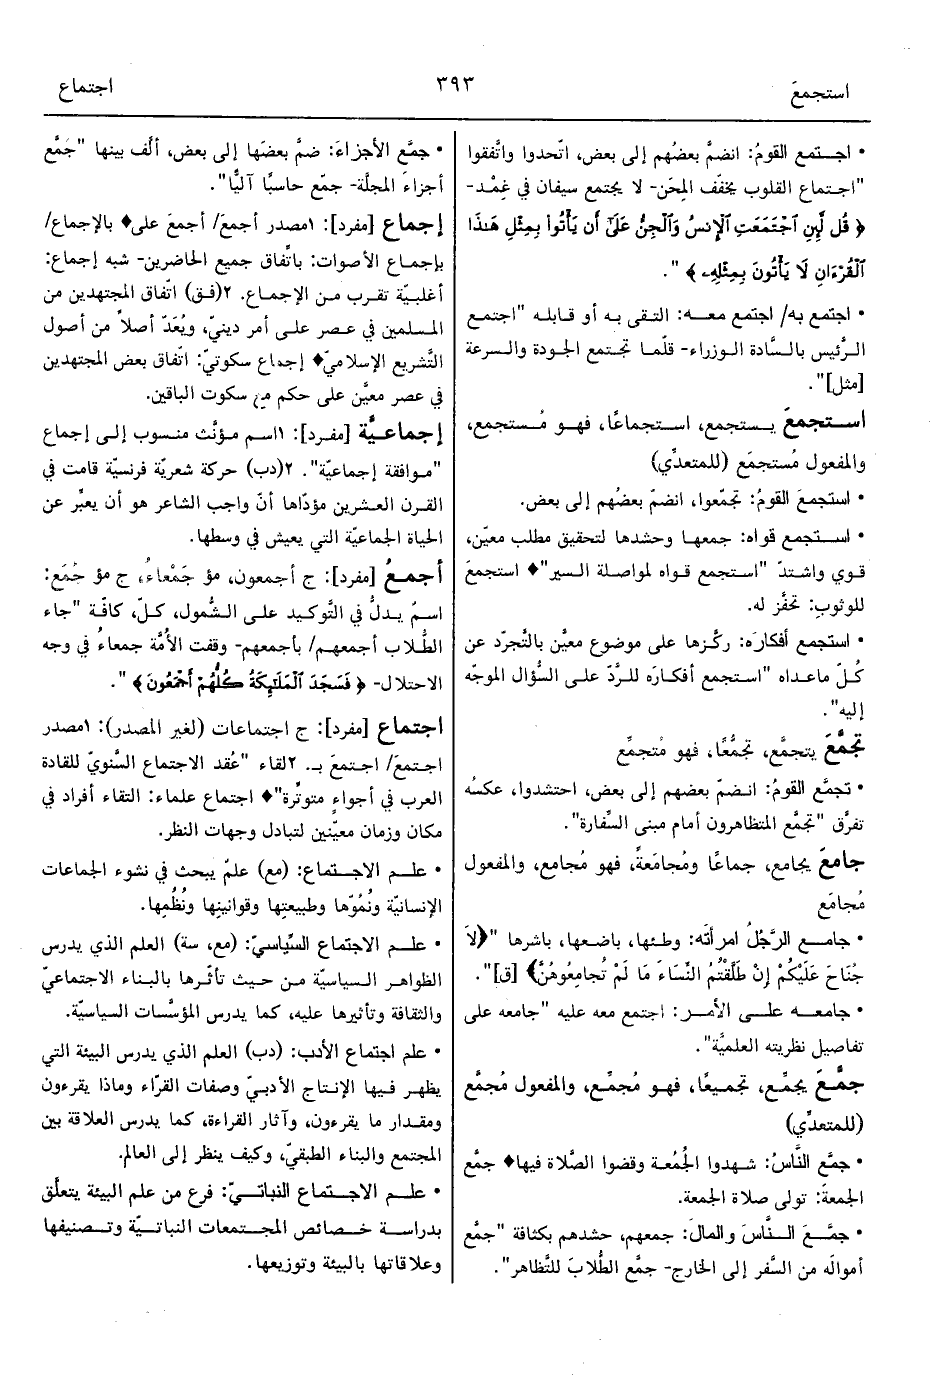 استجمعَ
٣٩٣
اجتماع
• اجـتمع القومُ: انضمَّ بعضُهم إلى بعض، اتّحدوا واتَّفقوا
"اجتماع القلوب يخفّف المِحَن- لا يجتمع سيفان في غِمْد-
﴿ قُل لَّئِنِ ٱجْتَمَعَتِ ٱلْإِنسُ وَٱلْجِنُّ عَلَىٰٓ أَن يَأْتُوا۟ بِمِثْلِ هَٰذَا
ٱلْقُرْءَانِ لَا يَأْتُونَ بِمِثْلِهِۦ ﴾ ".
• اجتمع به/ اجتمع معـه: التقى به أو قـابله "اجتمع
الرَّئيس بالسَّادة الـوزراء- قلّما تجـتمع الجودة والـسرعة
[مثل]".
اسـتجمعَ يـستجمع، اسـتجماعًا، فهـو مُـستجمِع،
والمفعول مُستجمَع (للمتعدِّي)
• استجمعَ القومُ: تجمّعوا، انضمّ بعضُهم إلى بعض.
• اسـتجمع قواه: جمعها وحشدها لتحقيق مطلب معيّن،
قوي واشتدّ "استجمع قواه لمواصلة السير"♦ استجمعَ
للوثوبِ: تحفَّز له.
• استجمع أفكارَه: ركَّزها على موضوع معيَّن بالتَّجرّد عن
كُلّ ماعداه "استجمع أفكارَه للرَّدّ على السُّؤال الموجَّه
إليه".
تجمَّعَ يتجمَّع، تجمُّعًا، فهو مُتجمِّع
• تجمَّع القومُ: انـضمّ بعضهم إلى بعض، احتشدوا، عكسُه
تفرَّق "تجمَّع المتظاهرون أمام مبنى السِّفارة".
جامعَ يجامع، جماعًا ومُجامَعةً، فهو مُجامِع، والمفعول
مُجامَع
• جامـع الرَّجُلُ امرأتَه: وطئها، باضعها، باشرها "﴿لاَ
جُنَاحَ عَلَيْكُمْ إِنْ طَلَّقْتُمُ النِّسَاءَ مَا لَمْ تُجامِعُوهُنَّ﴾ [ق]".
• جامعـه علـى الأمـر: اجتمع معه عليه "جامعه على
تفاصيل نظريته العلميَّة".
جمَّـعَ يجمِّـع، تجمـيعًا، فهـو مُجمِّـع، والمفعول مُجمَّع
(للمتعدِّي)
• جمَّع النَّاسُ: شـهدوا الجُمُعة وقضوا الصَّلاة فيها♦ جمَّع
الجمعةَ: تولى صلاة الجمعة.
• جمَّـعَ الـنَّاسَ والمالَ: جمعهم، حشدهم بكثافة "جمَّع
أموالَه من السَّفر إلى الخارج- جمَّع الطُّلابَ للتَّظاهر".
• جمَّع الأجزاءَ: ضمّ بعضَها إلى بعض، ألّف بينها "جَمَّع
أجزاءَ المجلّة- جمّع حاسبًا آليًّا".
إجماع [مفرد]: ١مصدر أجمعَ/ أجمعَ على♦ بالإجماع/
بإجماع الأصوات: باتِّفاق جميع الحاضرين- شبه إجماع:
أغلبيّة تقرب مـن الإجماع. ٢(فـق) اتّفاق المجتهدين من
المـسلمين في عصر علـى أمر دينيّ، ويُعَدّ أصلاً من أصول
التَّشريع الإسلاميّ♦ إجماع سكوتيّ: اتّفاق بعض المجتهدين
في عصر معيَّن على حكم مع سكوت الباقين.
إجماعـيَّة [مفـرد]: ١اسم مـؤنَّث منسوب إلـى إجماع
"مـوافقة إجماعيّة". ٢(دب) حركة شعريّة فرنسيّة قامت في
القرن العـشرين مؤدّاها أنّ واجب الشاعر هو أن يعبِّر عن
الحياة الجماعيّة التي يعيش في وسطها.
أجمعُ [مفرد]: ج أجمعون، مؤ جَمْعاءُ، ج مؤ جُمَع:
اسمٌ يـدلُّ في التَّوكيد على الشُّمول، كلّ، كافّة "جاء
الطُّلاب أجمعهـم/ بأجمعهم- وقفت الأُمَّة جمعاءُ في وجه
الاحتلال- ﴿ فَسَجَدَ ٱلْمَلَٰٓئِكَةُ كُلُّهُمْ أَجْمَعُونَ ﴾ ".
اجتماع [مفرد]: ج اجتماعات (لغير المصدر): ١مصدر
اجـتمعَ/ اجـتمعَ بـ. ٢لقاء "عُقد الاجتماع السَّنويّ للقادة
العرب في أجواءٍ متوتِّرة"♦ اجتماع علماء: التقاء أفراد في
مكان وزمان معيَّنين لتبادل وجهات النظر.
• علـم الاجـتماع: (مع) علمٌ يبحث في نشوء الجماعات
الإنسانيّة ونُمُوّها وطبيعتِها وقوانينِها ونُظُمِها.
• علـم الاجتماع السِّياسيّ: (مع، سة) العلم الذي يدرس
الظواهـر السـياسيّة مـن حيث تأثّـرها بالبناء الاجتماعيّ
والثقافة وتأثيرها عليه، كما يدرس المؤسَّسات السياسيّة.
• علم اجتماع الأدب: (دب) العلم الذي يدرس البيئة التي
يظهر فـيها الإنـتاج الأدبيّ وصفات القرّاء وماذا يقرءون
ومقـدار ما يقرءون، وآثار القراءة، كما يدرس العلاقة بين
المجتمع والبناء الطبقيّ، وكيف ينظر إلى العالم.
• علـم الاجـتماع النباتـيّ: فرع من علم البيئة يتعلّق
بدراسـة خـصائص المجـتمعات النباتـيّة وتـصنيفها
وعلاقاتها بالبيئة وتوزيعها.